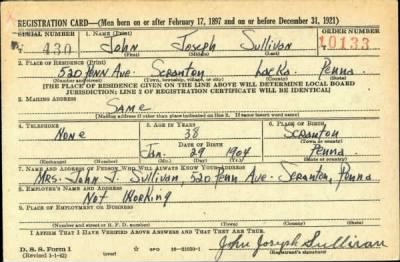 REGISTRATION CARD—(Men born on or after February 17, 1897 and on or before December 31, 1921)
SERIAL NUMBER 1. NAME (Print) ORDER NUMBER
430 John Joseph Sullivan 10133
(First) (Middle) (Last)
2. PLACE OF RESIDENCE (Print)
520 Penn Ave. Scranton Lacka. Penna
(Number and street) (Town, township, village, or city) (County) (State)
[THE PLACE OF RESIDENCE GIVEN ON THE LINE ABOVE WILL DETERMINE LOCAL BOARD
JURISDICTION; LINE 2 OF REGISTRATION CERTIFICATE WILL BE IDENTICAL]
3. MAILING ADDRESS
Same
[Mailing address if other than place indicated on line 2. If same insert word same]
4. TELEPHONE 5. AGE IN YEARS 6. PLACE OF BIRTH
None 38 Scranton
DATE OF BIRTH (Town or county)
Jan. 29 1904 Penna.
(Exchange) (Number) (Mo.) (Day) (Yr.) (State or country)
7. NAME AND ADDRESS OF PERSON WHO WILL ALWAYS KNOW YOUR ADDRESS
Mrs. John J. Sullivan, 520 Penn Ave. Scranton, Penna
8. EMPLOYER'S NAME AND ADDRESS
Not Working
9. PLACE OF EMPLOYMENT OR BUSINESS
(Number and street or R. F. D. number) (Town) (County) (State)
I AFFIRM THAT I HAVE VERIFIED ABOVE ANSWERS AND THAT THEY ARE TRUE.
D. S. S. Form 1
(Revised 1-1-42) GPO
John Joseph Sullivan
(Registrant's signature)